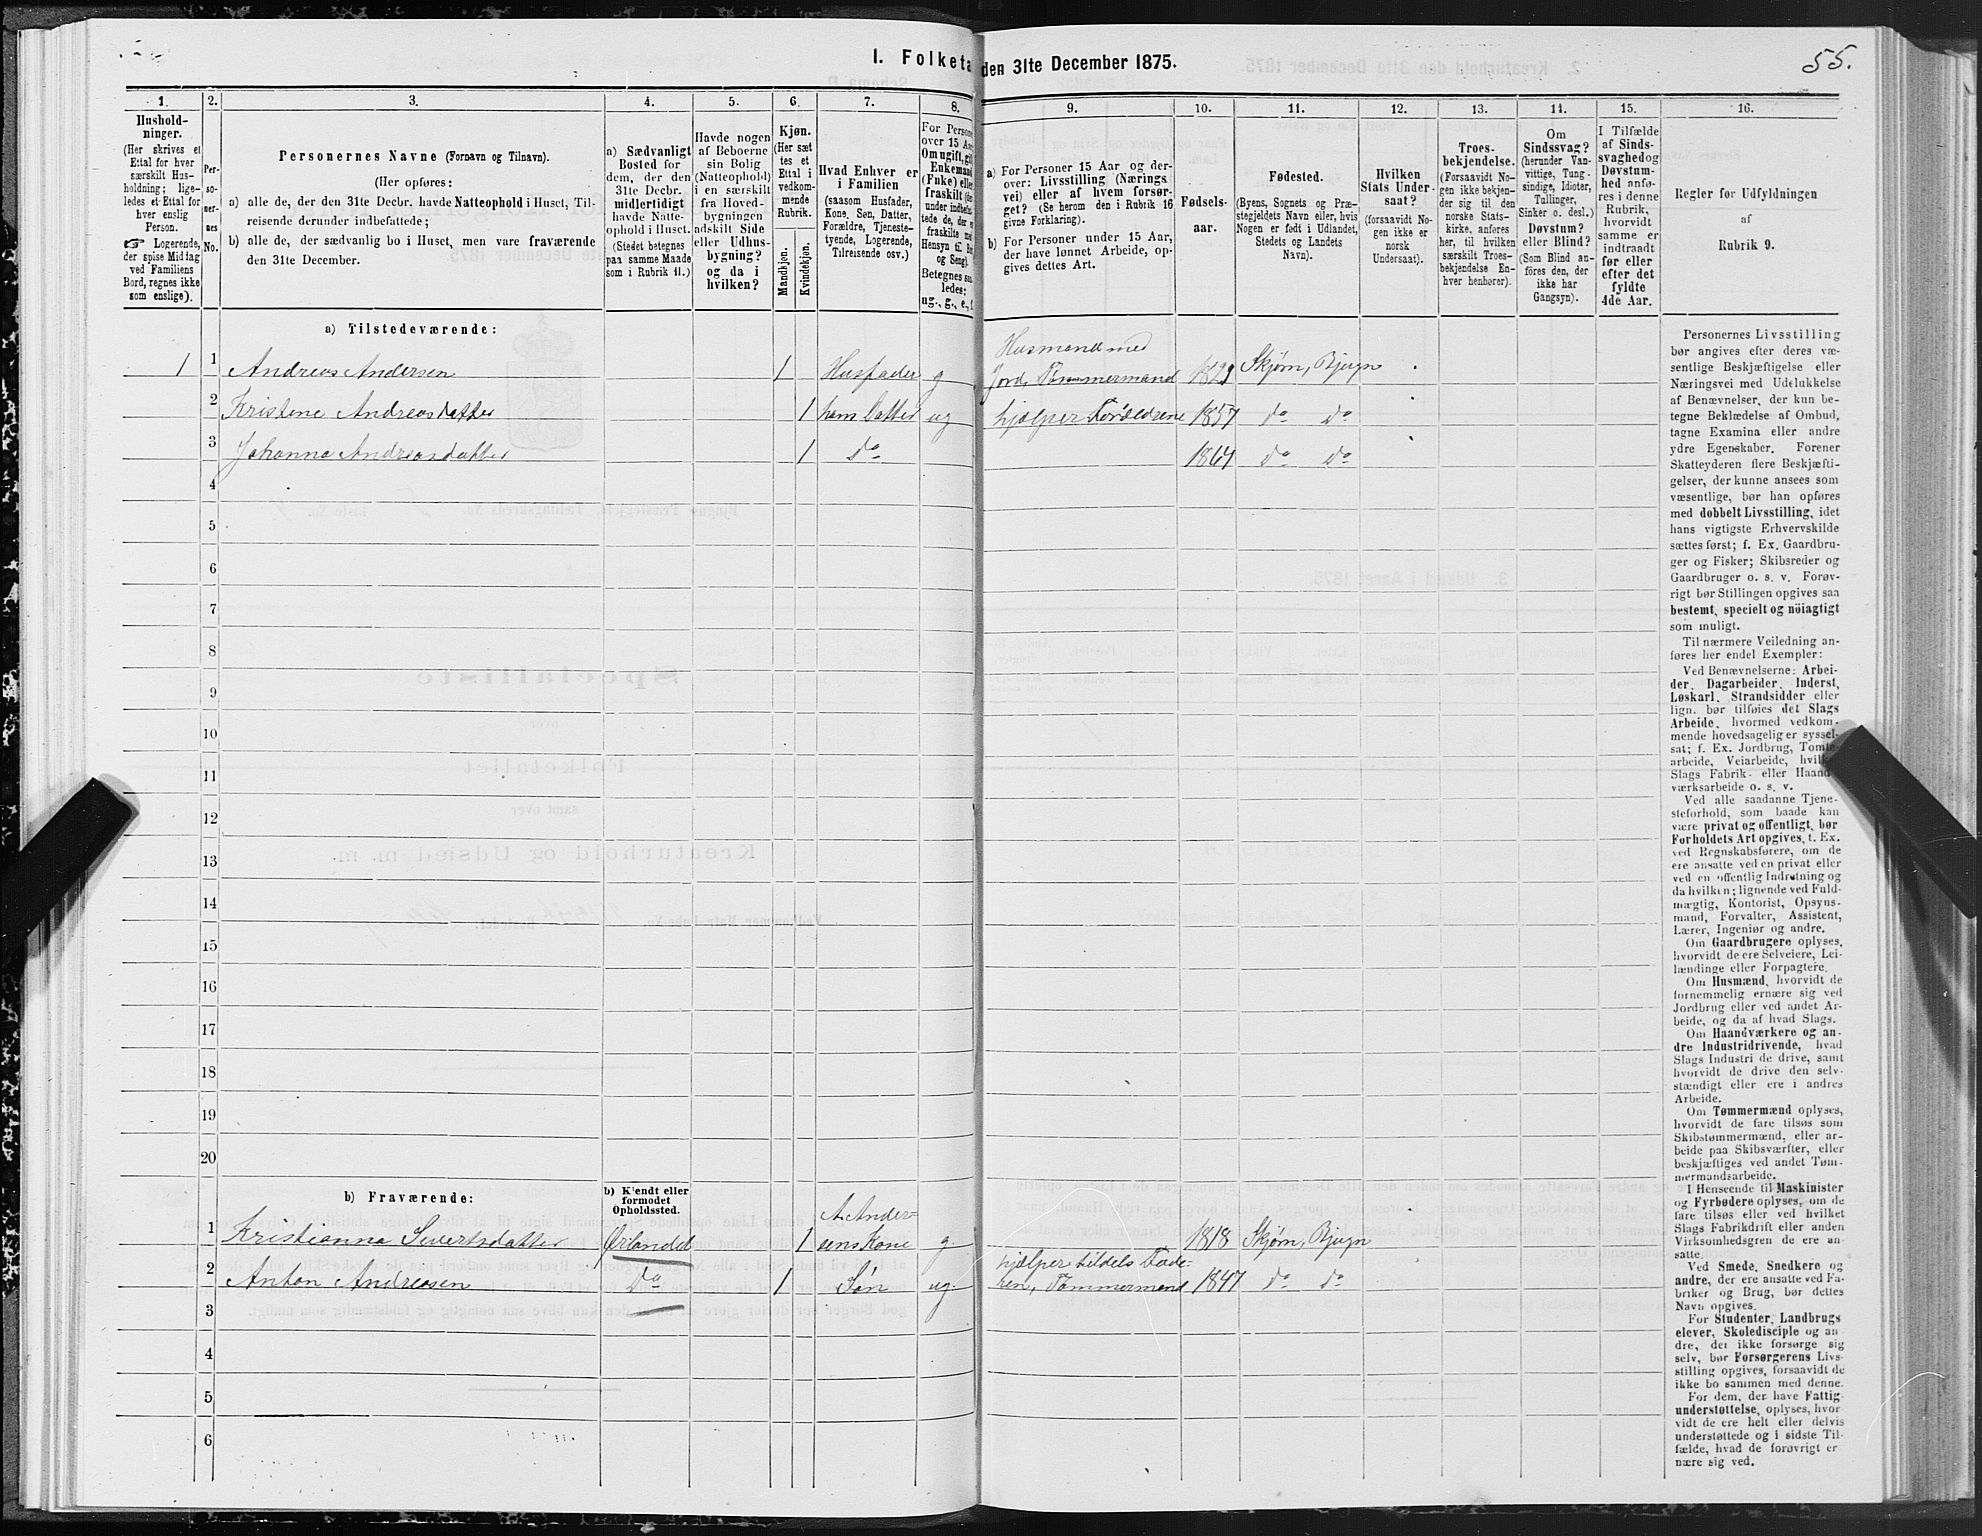 I. Folketa den 31te December 1875.
55.
1. 2. 3. 4. 5. 6. 7. 8. 9. 10. 11. 12. 13. 14. 15. 16.
Hushold-
ninger.
(Her skrives et
Ettal for hver
særskilt Hus-
holdning; lige-
ledes et Ettal for
hver enslig
Person.
☞ Logerende,
der spise Middag
ved Familiens
Bord, regnes ikke
som enslige).
Per-
so-
ner-
nes
No.
Personernes Navne (Fornavn og Tilnavn).
(Her opføres:
a) alle de, der den 31te Decbr. havde Natteophold i Huset, Til-
reisende derunder indbefattede;
b) alle de, der sædvanlig bo i Huset, men vare fraværende
den 31te December.
a) Sædvanligt
Bosted for
dem, der den
31te Decbr.
midlertidigt
havde Natte-
ophold i Huset.
(Stedet betegnes
paa samme Maade
som i Rubrik 11.)
Havde nogen
af Beboerne
sin Bolig
(Natteophold)
i en særskilt
fra Hoved-
bygningen
adskilt Side
eller Udhus-
bygning?
og da i
hvilken?
Kjøn.
(Her sæt
tes et
Ettal i
vedkom-
mende
Rubrik.
Mandkjøn.
Kvindekjøn.
Hvad Enhver er
i Familien
(saasom Husfader,
Kone, Søn, Datter,
Forældre, Tjeneste-
tyende, Logerende,
Tilreisende osv.)
For Persone
over 15 Aa
Om ugift, gif
Enkemand
(Enke) elle
fraskilt (de
under indbefat
tede de, der er
fraskilte med
Hensyn til Bo
og Seng).
Betegnes saa
ledes:
ug., g., e., f.
a) For Personer 15 Aar og der-
over: Livsstilling (Nærings
vei) eller af hvem forsør-
get? (Se herom den i Rubrik 16
givne Forklaring).
b) For Personer under 15 Aar,
der have lønnet Arbeide, op-
gives dettes Art.
Fødsels-
aar.
Fødested.
(Byens, Sognets og Præ-
stegjeldets Navn eller, hvis
Nogen er født i Udlandet,
Stedets og Landets
Navn).
Hvilken
Stats Under-
saat?
(forsaavidt No-
gen ikke er
norsk
Undersaat).
Troes-
bekjendelse.
(Forsaavidt No
gen ikke bekjen-
der sig til den
norske Stats-
kirke, anføres
her, til hvilken
særskilt Troes-
bekjendelse En-
hver henhører).
Om
Sindssvag?
(herunder Van-
vittige, Tung-
sindige, Idioter,
Tullinger,
Sinker o. desl.)
Døvstum?
eller Blind?
(Som Blind an-
føres den, der
ikke har
Gangsyn).
I Tilfælde
af Sinds-
svaghed og
Døvstum-
hed anfø-
res i denne
Rubrik,
hvorvidt
samme er
indtraadt
før eller
efter det
fyldte
4de Aar.
Regler for Udfyldningen
af
Rubrik 9.
a) Tilstedeværende:
Husmand med
1 1 Andreas Andersen 1 Husfader g Jord, Tømmermand 1829 Skjørn, Bjugn
2 Kristene Andreasdatter 1 hans Datter ug hjælper Forældrene 1857 do do
3 Johanna Andreasdatter 1 do 1864 do do
4
5
6
7
8
9
10
11
12
13
14
15
16
17
18
19
20
b) Fraværende:
b) Kjendt eller
formodet
Opholdssted.
A. Ander-
1 Kristianna Sivertsdatter Ørlandet 1 sens Kone g. 1818 Skjørn, Bjugn
hjælper tildels Fade-
2 Anton Andreasen do 1 Søn ug. ren, Tømmermand 1847 do do
3
4
5
6
Personernes Livsstilling
bør angives efter deres væ-
sentlige Beskjæftigelse eller
Næringsvei med Udelukkelse
af Benævnelser, der kun be-
tegne Beklædelse af Ombud,
tagne Examina eller andre
ydre Egenskaber. Forener
Skatteyderen flere Beskjæfti-
gelser, der kunne ansees som
væsentlige, bør han opføres
med dobbelt Livsstilling, idet
hans vigtigste Erhvervskilde
sættes først; f. Ex. Gaardbru-
ger og Fisker; Skibsreder og
Gaardbruger o. s. v. Forøv-
rigt bør Stillingen opgives saa
bestemt, specielt og nöiagtigt
som muligt.
Til nærmere Veiledning an-
føres her endel Exempler:
Ved Benævnelserne: Arbei-
der, Dagarbeider, Inderst,
Løskarl, Strandsidder eller
lign. bør tilføies det Slags
Arbeide, hvormed vedkom-
mende hovedsagelig er syssel-
sat; f. Ex. Jordbrug, Tomte-
arbeide, Veiarbeide, hvilket
Slags Fabrik- eller Haand-
værksarbeide o. s. v.
Ved alle saadanne Tjene-
steforhold, som baade kan
være privat og offentligt, bør
Forholdets Art opgives, t. Ex.
ved Regnskabsførere, om de
ere ansatte ved en privat eller
ved en offentlig Indretning og
da hvilken; lignende ved Fuld-
mægtig, Kontorist, Opsyns-
mand, Forvalter, Assistent,
Lærer, Ingeniør og andre.
Om Gaardbrugere oplyses,
hvorvidt de ere Selveiere, Lei-
lændinge eller Forpagtere.
Om Husmænd, hvorvidt de
fornemmelig ernære sig ved
Jordbrug eller ved andet Ar-
beide, og da af hvad Slags.
Om Haandværkere og an-
dre Industridrivende, hvad
Slags Industri de drive, samt
hvorvidt de drive den selv-
stændigt eller ere i andres
Arbeide.
Om Tømmermænd oplyses,
hvorvidt de fare tilsøs som
Skibstømmermænd, eller ar-
beide paa Skibsværfter, eller
beskjæftiges ved andet Tøm-
mermandsarbeide.
I Henseende til Maskinister
og Fyrbødere oplyses, om de
fare tilsøs eller ved hvilket
Slags Fabrikdrift eller anden
Virksomhedsgren de ere an-
satte.
Ved Smede, Snedkere og
andre, der ere ansatte ved Fa-
briker og Brug, bør dettes
Navn opgives.
For Studenter, Landbrugs
elever, Skoledisciple og an-
dre, der ikke forsørge sig
selv, bør Forsørgerens Livs-
stilling opgives, forsaavidt de
ikke bo sammen med denne.
For dem, der have Fattig-
understøttelse, oplyses, hvor-
vidt de ere helt eller delvis
understøttede og i sidste Til-
fælde, hvad de forøvrigt er
nære sig ved.